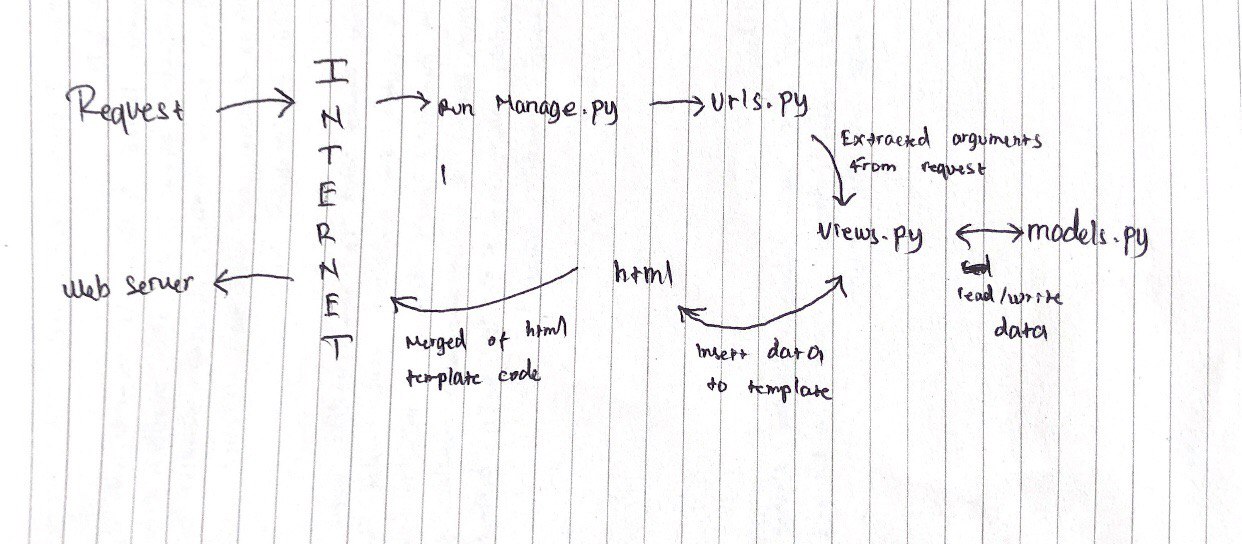 Request
INTERNET
Run Manage.py
urls.py
Extracted arguments
From request
views.py
models.py
read/write
data
html
Insert data
to template
Merged of html
template code
Web server